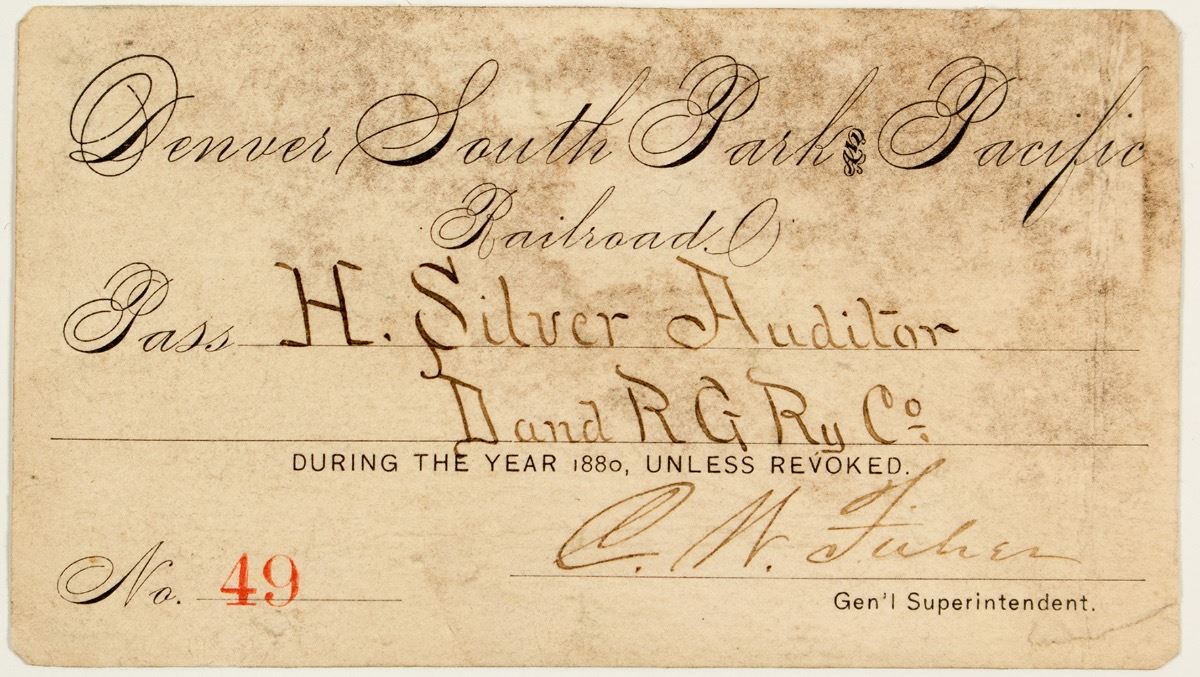 Denver South Park AND Pacific
Railroad.
Pass H. Silver Auditor
D and R G Ry Co.
DURING THE YEAR 1880, UNLESS REVOKED.
C. W. Fisher
No. 49
Gen'l Superintendent.